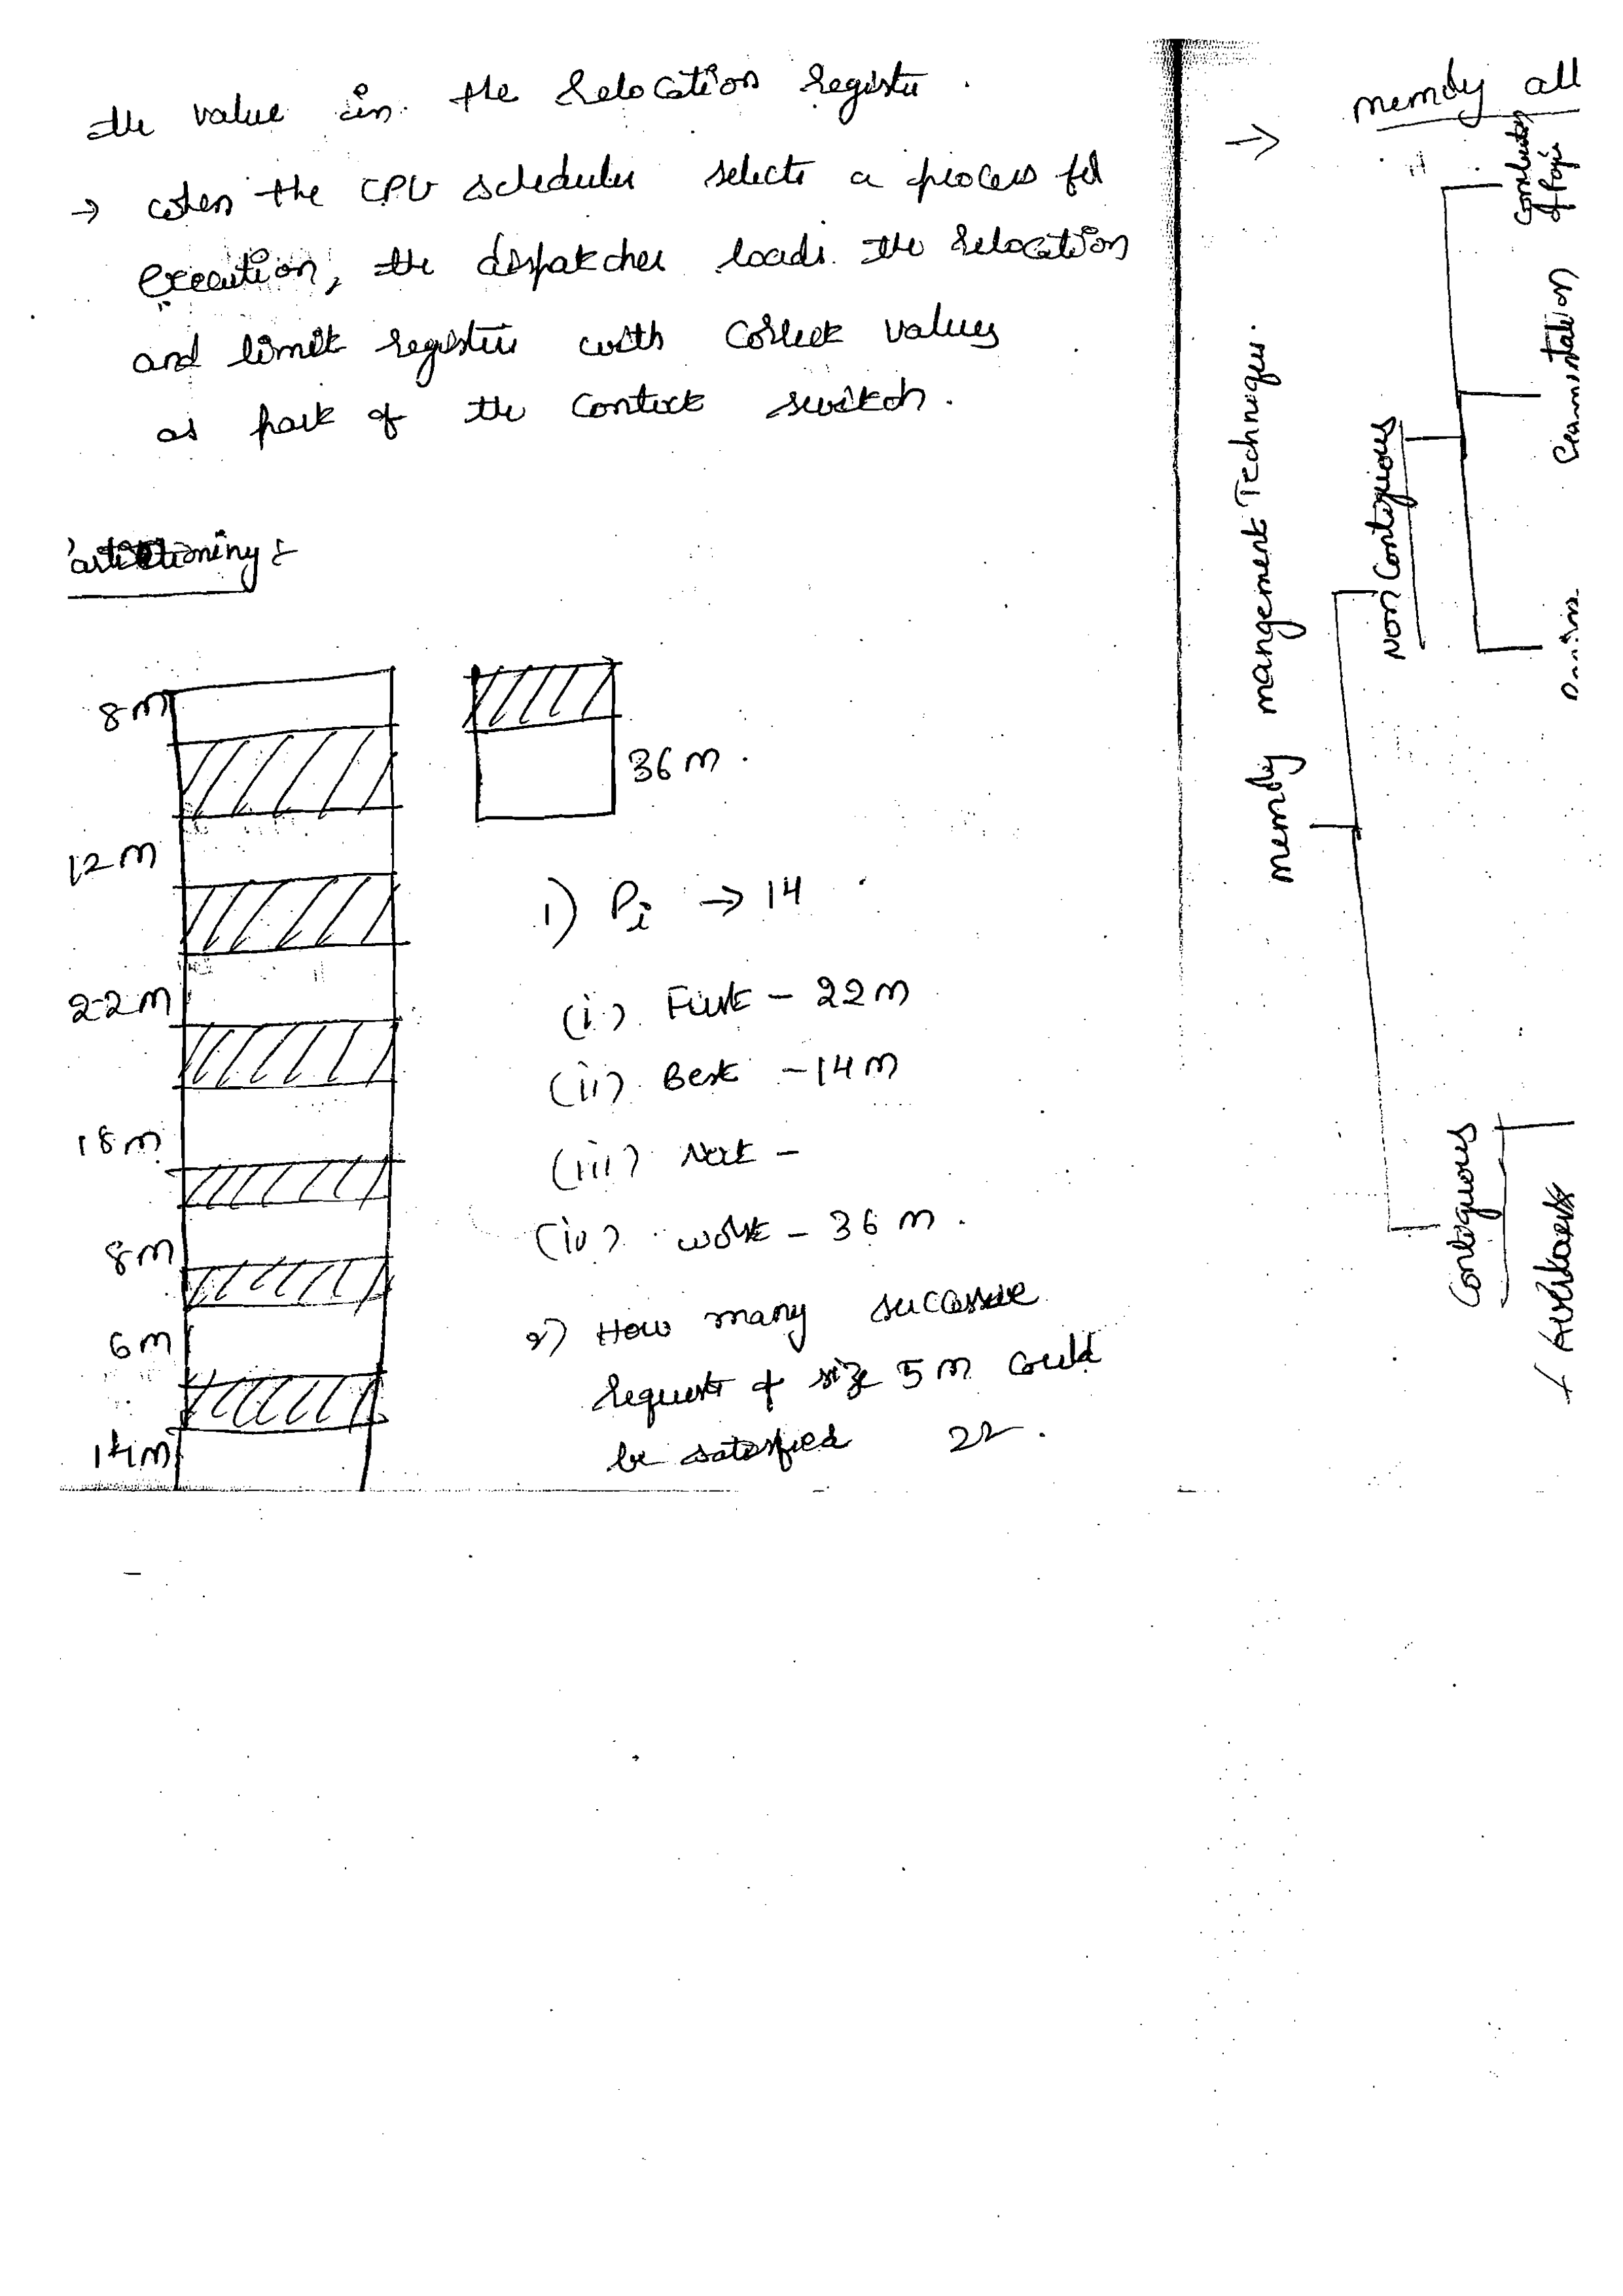 the value in the relocation register.
→ when the CPU scheduler selects a process for
execution, the dispatcher loads the relocation
and limit registers with correct values
as part of the context switch.
artitioning :-
8m
12m
22m
18m
8m
6m
14m
36m.
1) Pi → 14
(i) First - 22m
(ii) Best - 14m
(iii) Next -
(iv) worst - 36m.
2) How many successive
requests of size 5m could
be satisfied 22.
→ memory all
memory mangement Techniques.
Non Contiguous
Segmentation
Contiguous